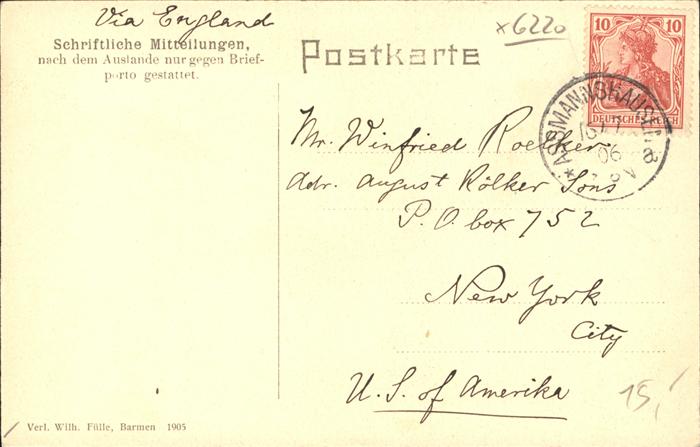 Via England
Schriftliche Mitteilungen,
nach dem Auslande nur gegen Brief-
porto gestattet.
Postkarte
x 6220
10 10
DEUTSCHES REICH
ASSMANNSHAUSEN
06
Mr. Winfried Roelker
adr. August Rölker Sons
P. O. box 752
New York
City
U. S. of Amerika
15,-
Verl. Wilh. Fülle, Barmen 1905